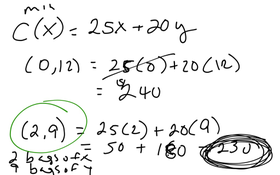 min
C(X) = 25x + 20y
(0,12) = 25(0) + 20(12)
= 240
(2,9) = 25(2) + 20(9)
= 50 + 180 = 230
2 bags of x
9 bags of y